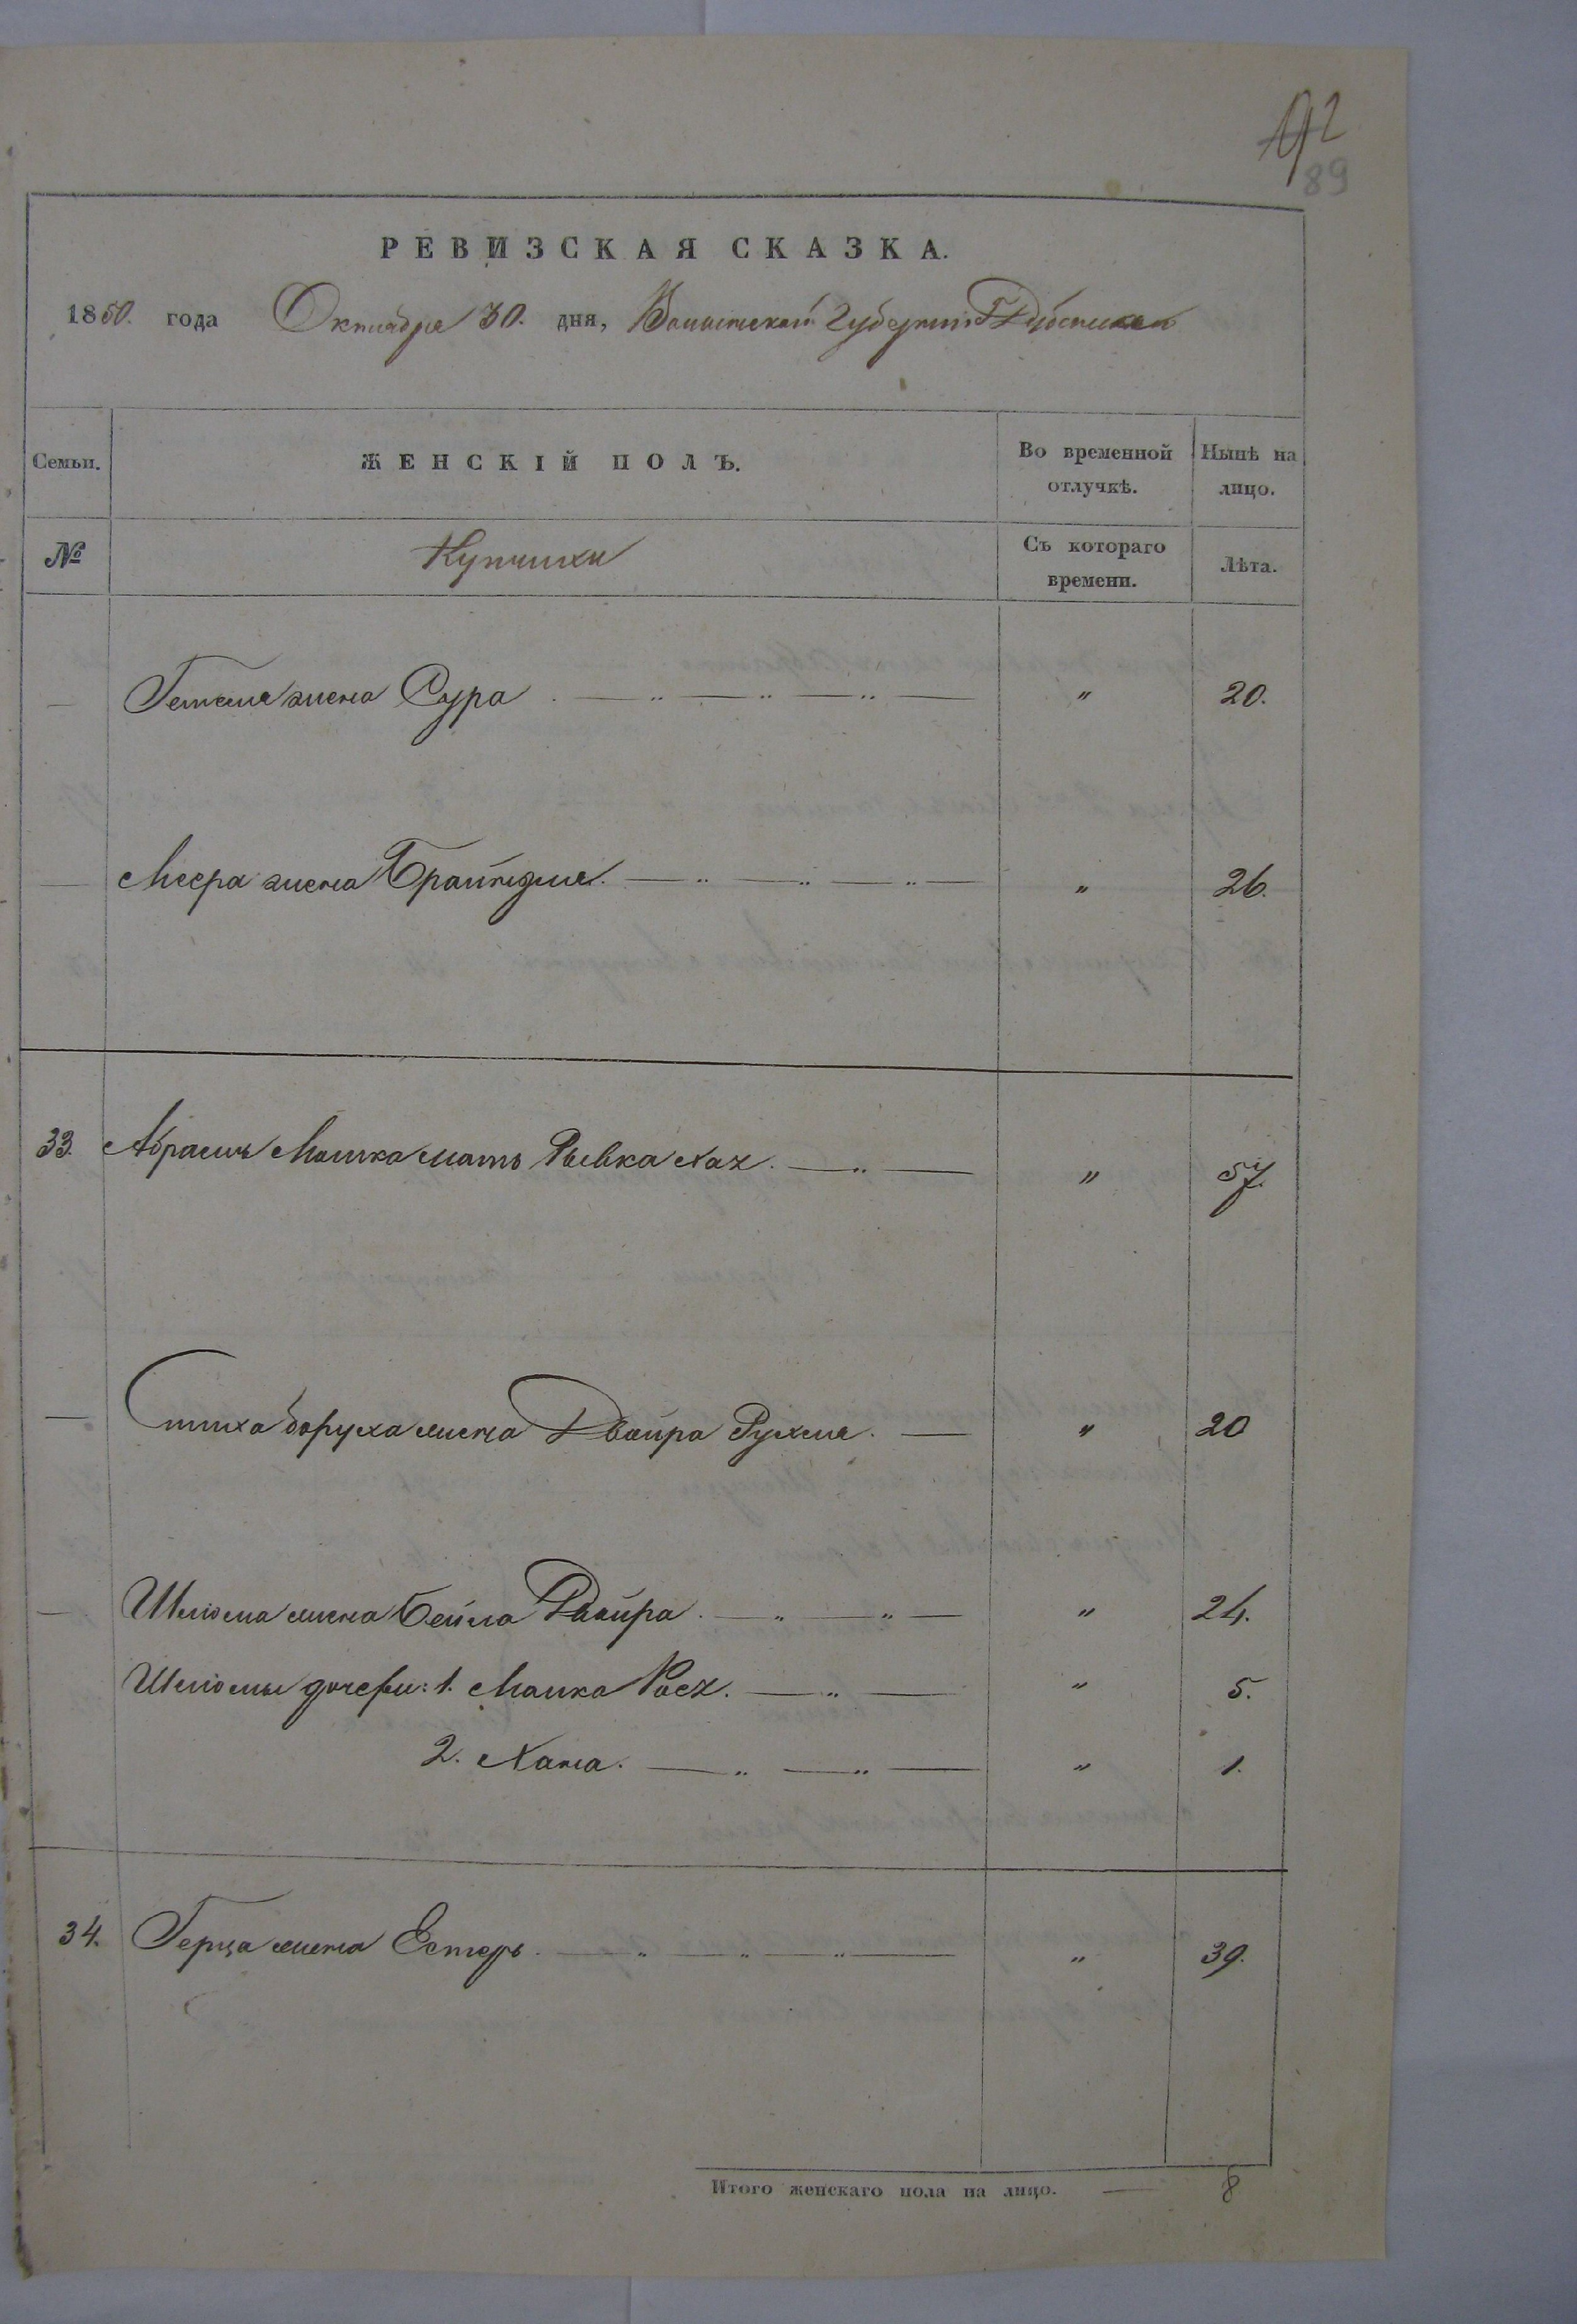 92
89
РЕВИЗСКАЯ СКАЗКА.
1850. года Октября 30. дня, Волынской Губерніи Г. Дубенских
Семьи. ЖЕНСКІЙ ПОЛЪ. Во временной отлучкѣ. Нынѣ на лицо.
№ Купчихи Съ котораго времени. Лѣта.
— Гетеля жена Сура — „ 20.
— Меера жена Брайндля. — „ 26.
33. Абрамъ Мошка мать Рывка Хая. — „ 57.
— боруха жена Двойра Рухля. — „ 20
— Шліома жена Бейла Двойра. — „ 24.
Шліомы дочери: 1. Малка Рася. — „ 5.
2. Хана. — „ 1.
34. Герца жена Естеръ. — „ 39.
Итого женскаго пола на лицо. — 8